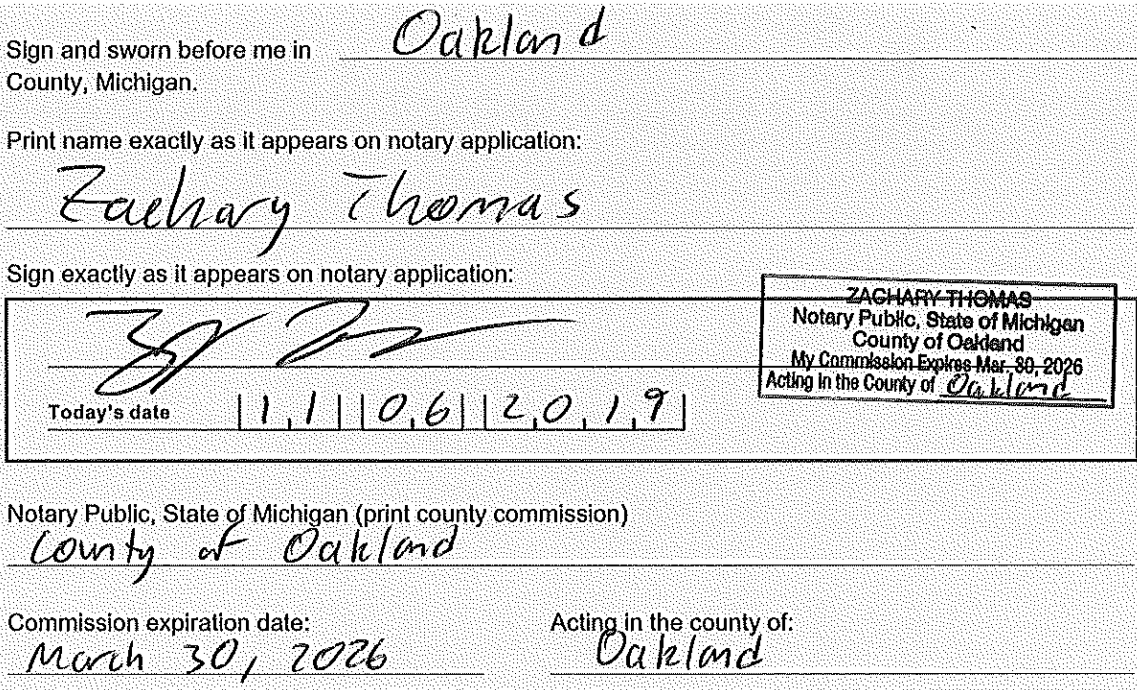 Sign and sworn before me in Oakland
County, Michigan.
Print name exactly as it appears on notary application:
Zachary Thomas
Sign exactly as it appears on notary application:
ZACHARY THOMAS
Notary Public, State of Michigan
County of Oakland
My Commission Expires Mar. 30, 2026
Acting in the County of Oakland
Today's date 11 06 2019
Notary Public, State of Michigan (print county commission)
County of Oakland
Commission expiration date: Acting in the county of:
March 30, 2026 Oakland